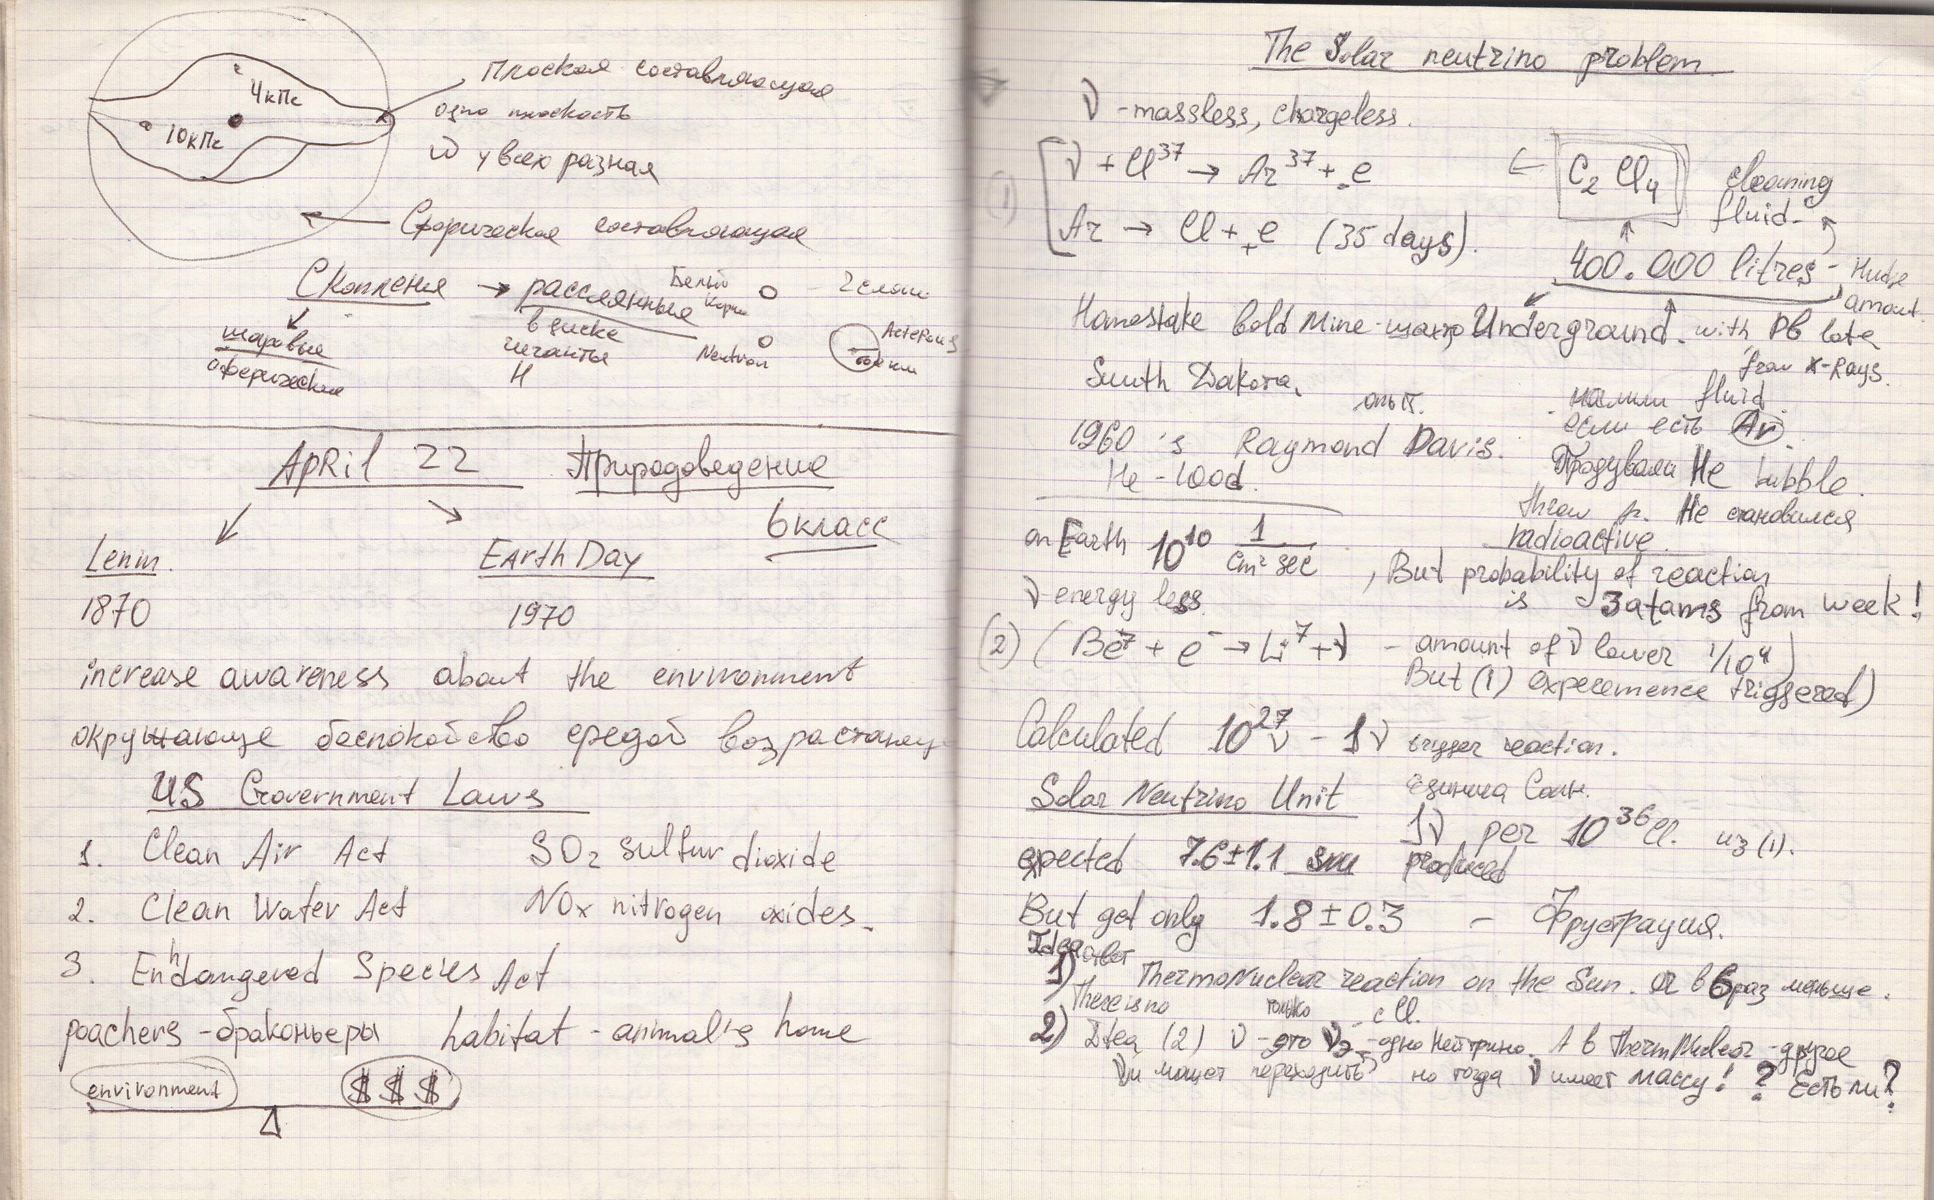 4кПс
10кПс
Плоская составляющая
одно плоскость
ω у всех разная
Сферическая составляющая
Скопления → рассеянные
в диске
гиганты
H
шаровые
сферические
Белый
Карлик
Neutron
April 22 Природоведение
6 класс
Lenin.
Earth Day
1870
1970
increase awareness about the environment
окружающе беспокойство средой возрастающ
US Government Laws
1. Clean Air Act SO2 sulfur dioxide
2. Clean Water Act NOx nitrogen oxides.
3. Enhdangered Species Act
poachers - браконьеры habitat - animal's home
environment $ $ $
The Solar neutrino problem
ν - massless, chargeless.
(1) ν + Cl³⁷ → Ar³⁷ + ₋e
Ar → Cl + ₊e (35 days).
← C2 Cl4 cleaning
fluid
400.000 litres - Hudge
amount.
Homestake Gold Mine - шахта Underground. with Pb late
from X-Rays.
South Dakota,
опыт.
1960's Raymond Davis.
He - 100d.
налили fluid
если есть Ar.
Продували He bubble.
threw р. He становился
radioactive
on Earth 10¹⁰ 1/cm² sec
, But probability of reaction
is 3 atams from week!
ν energy less
(2) (Be⁷ + e⁻ → Li⁷ + ν - amount of ν lower 1/10⁴)
But (1) experemence triggered)
Calculated 10²⁷ν - 1ν trigger reaction.
Solar Neutrino Unit единица Солн.
1ν per 10³⁶ Cl. из (1).
expected 7.6 ± 1.1 snu produced
But get only 1.8 ± 0.3 - Фрустрация.
Idea ответ
1) There is no ThermoNuclear reaction on the Sun. or в 6 раз меньше.
только с Cl.
2) Idea (2) ν - это νэ - одно нейтрино. А в ThermNuclear - другое
νи может переходить но тогда ν имеет массу! ? Есть ли?